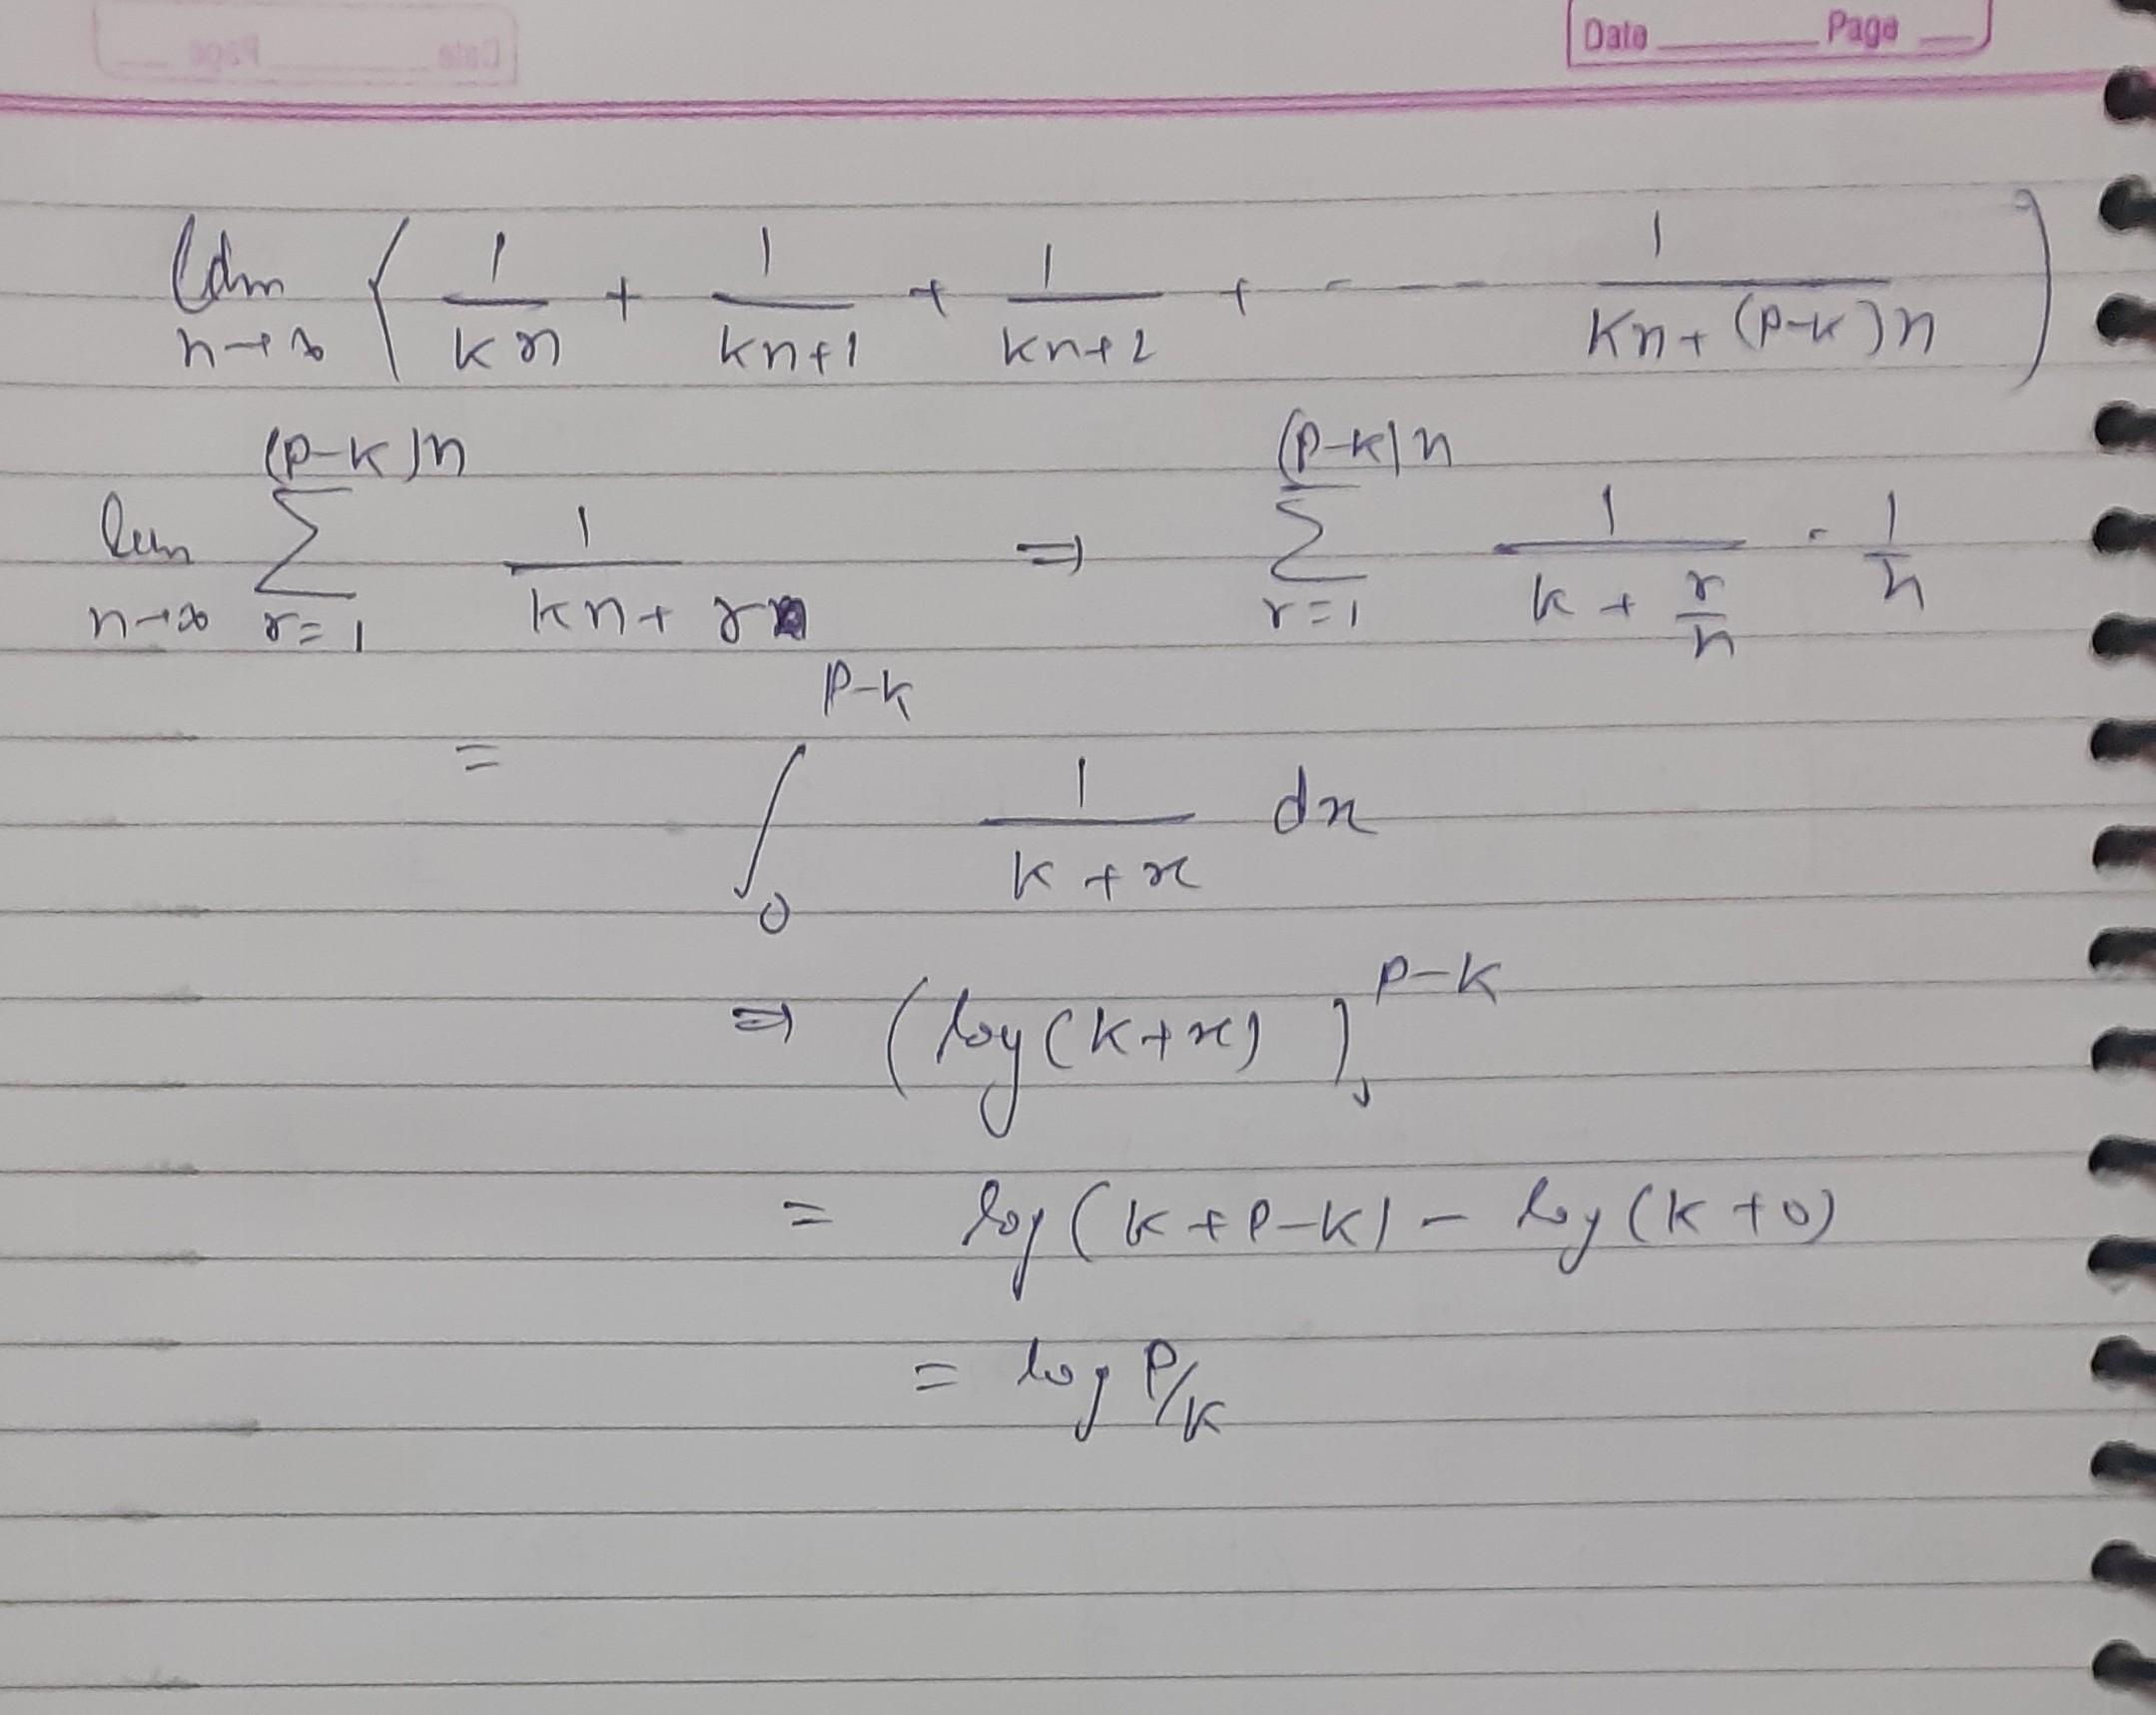 Date ______ Page __
lim n→∞ { 1/kn + 1/kn+1 + 1/kn+2 + - - - 1/Kn+(P-K)n )
lim n→∞ (P-K)n Σ r=1 1/kn+r ⇒ (P-K)n Σ r=1 1/k+r/n · 1/n
= ∫ 0 P-K 1/K+x dx
⇒ (log(K+x)]₀ P-K
= log(K+P-K) - log(K+0)
= log P/K